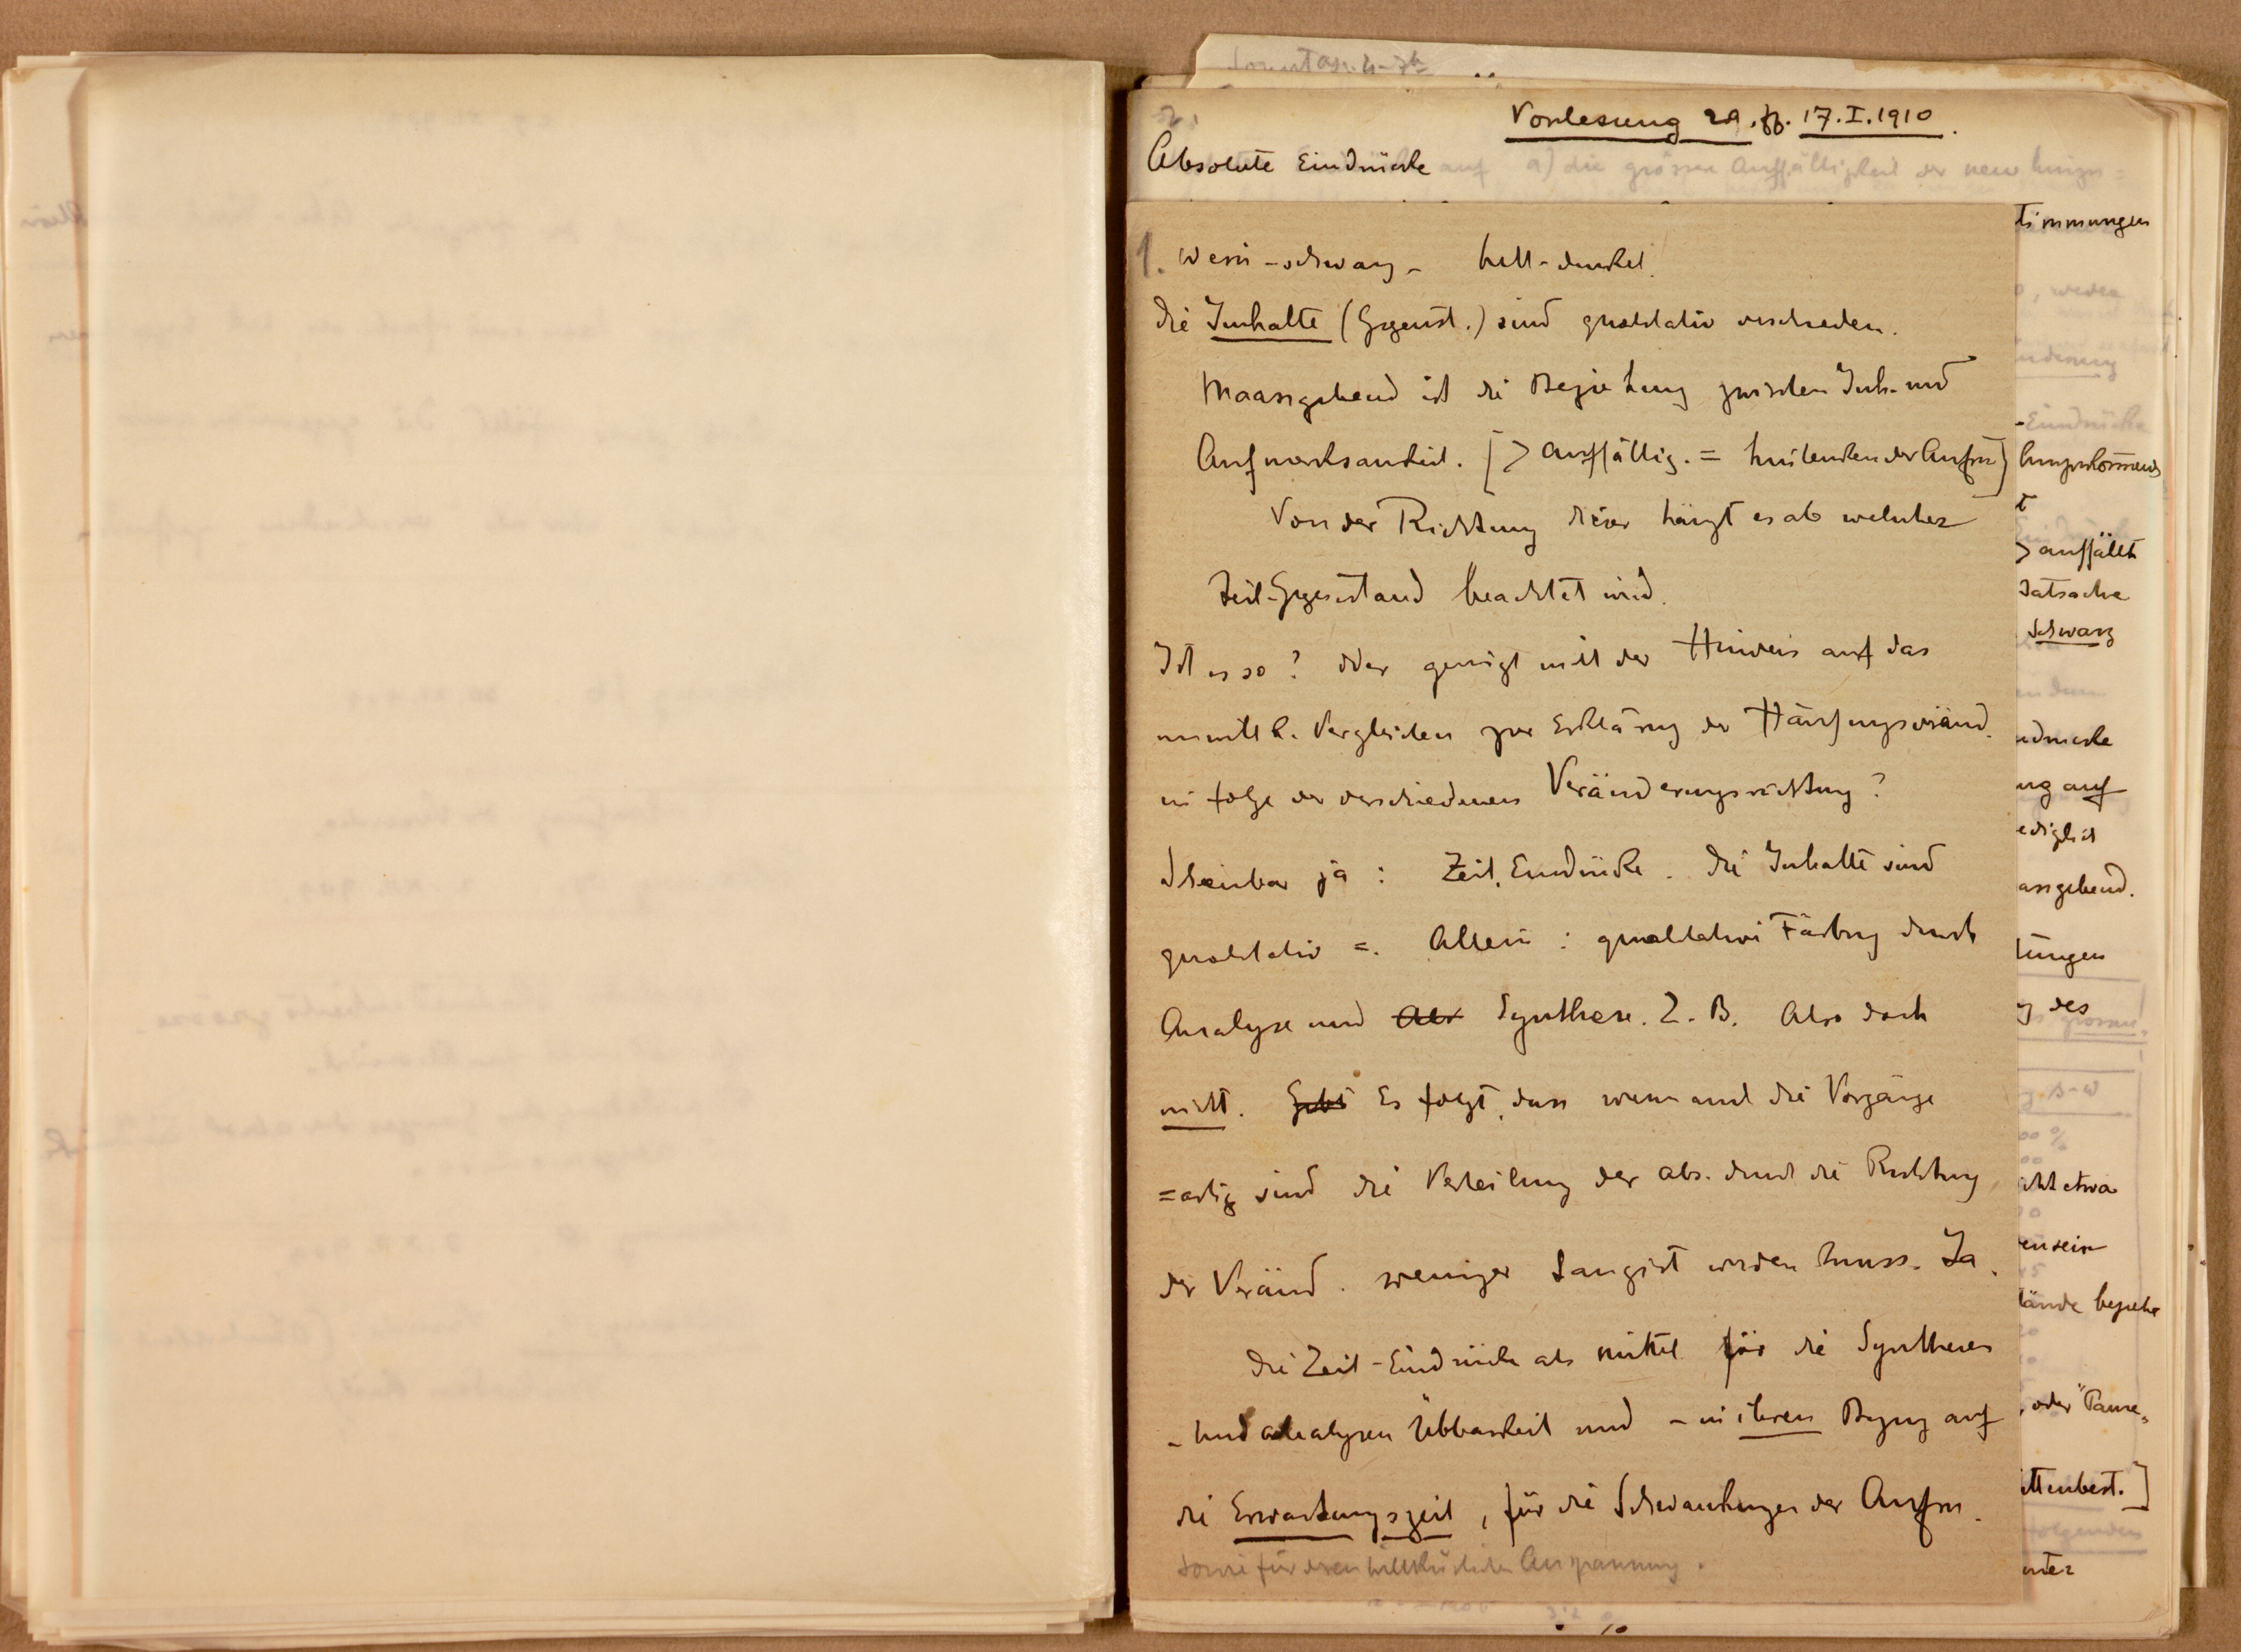 Sonntag. 4-7h
Vorlesung 29. 17.I.1910.
Absolute Eindrücke auf a) die grössere Auffälligkeit der neu hinzu=
1. Weiss - schwarz - hell - dunkel.
die Inhalte (Gegenst.) sind qualitativ verschieden.
Maassgebend ist die Beziehung zwischen Inh. und
Aufmerksamkeit. [> auffällig. = hinlenken der Aufm]
Von der Richtung dieser hängt es ab welcher
Teil-Gegenstand beachtet wird.
Ist es so? Oder genügt nicht der Hinweis auf das
unmittelb. Vergleichen zur Erklärung der Häufungsveränd.
in folge der verschiedenen Veränderungsrichtung?
Scheinbar ja: Zeit. Eindrücke. Die Inhalte sind
qualitativ =. Allein: qualitative Färbung durch
Analyse und Als Synthese. Z. B. Also doch
nicht. Gibt Es folgt, dass wenn auch die Vorgänge
=artig sind die Verteilung der abs. durch die Richtung
der Veränd. weniger tangirt werden muss. Ja
die Zeit-Eindrücke als Mittel für die Synthesen
- und analysen Übbarkeit und - in ihrem Bezug auf
die Erwartungszeit, für die Schwankungen der Aufm.
sowie für deren willkürlichen Anspannung.
timmungen
, weder
nderung
-Eindrücke
hinzukommend
t
> auffällt
Tatsache
Schwarz
ndrücke
ng auf
ediglich
assgebend.
tungen
g des
grossen
g. S-W
00 %
cht etwa
ensein
tände beziehe
, oder "Paure=
ittenbest.]
folgenden
unter